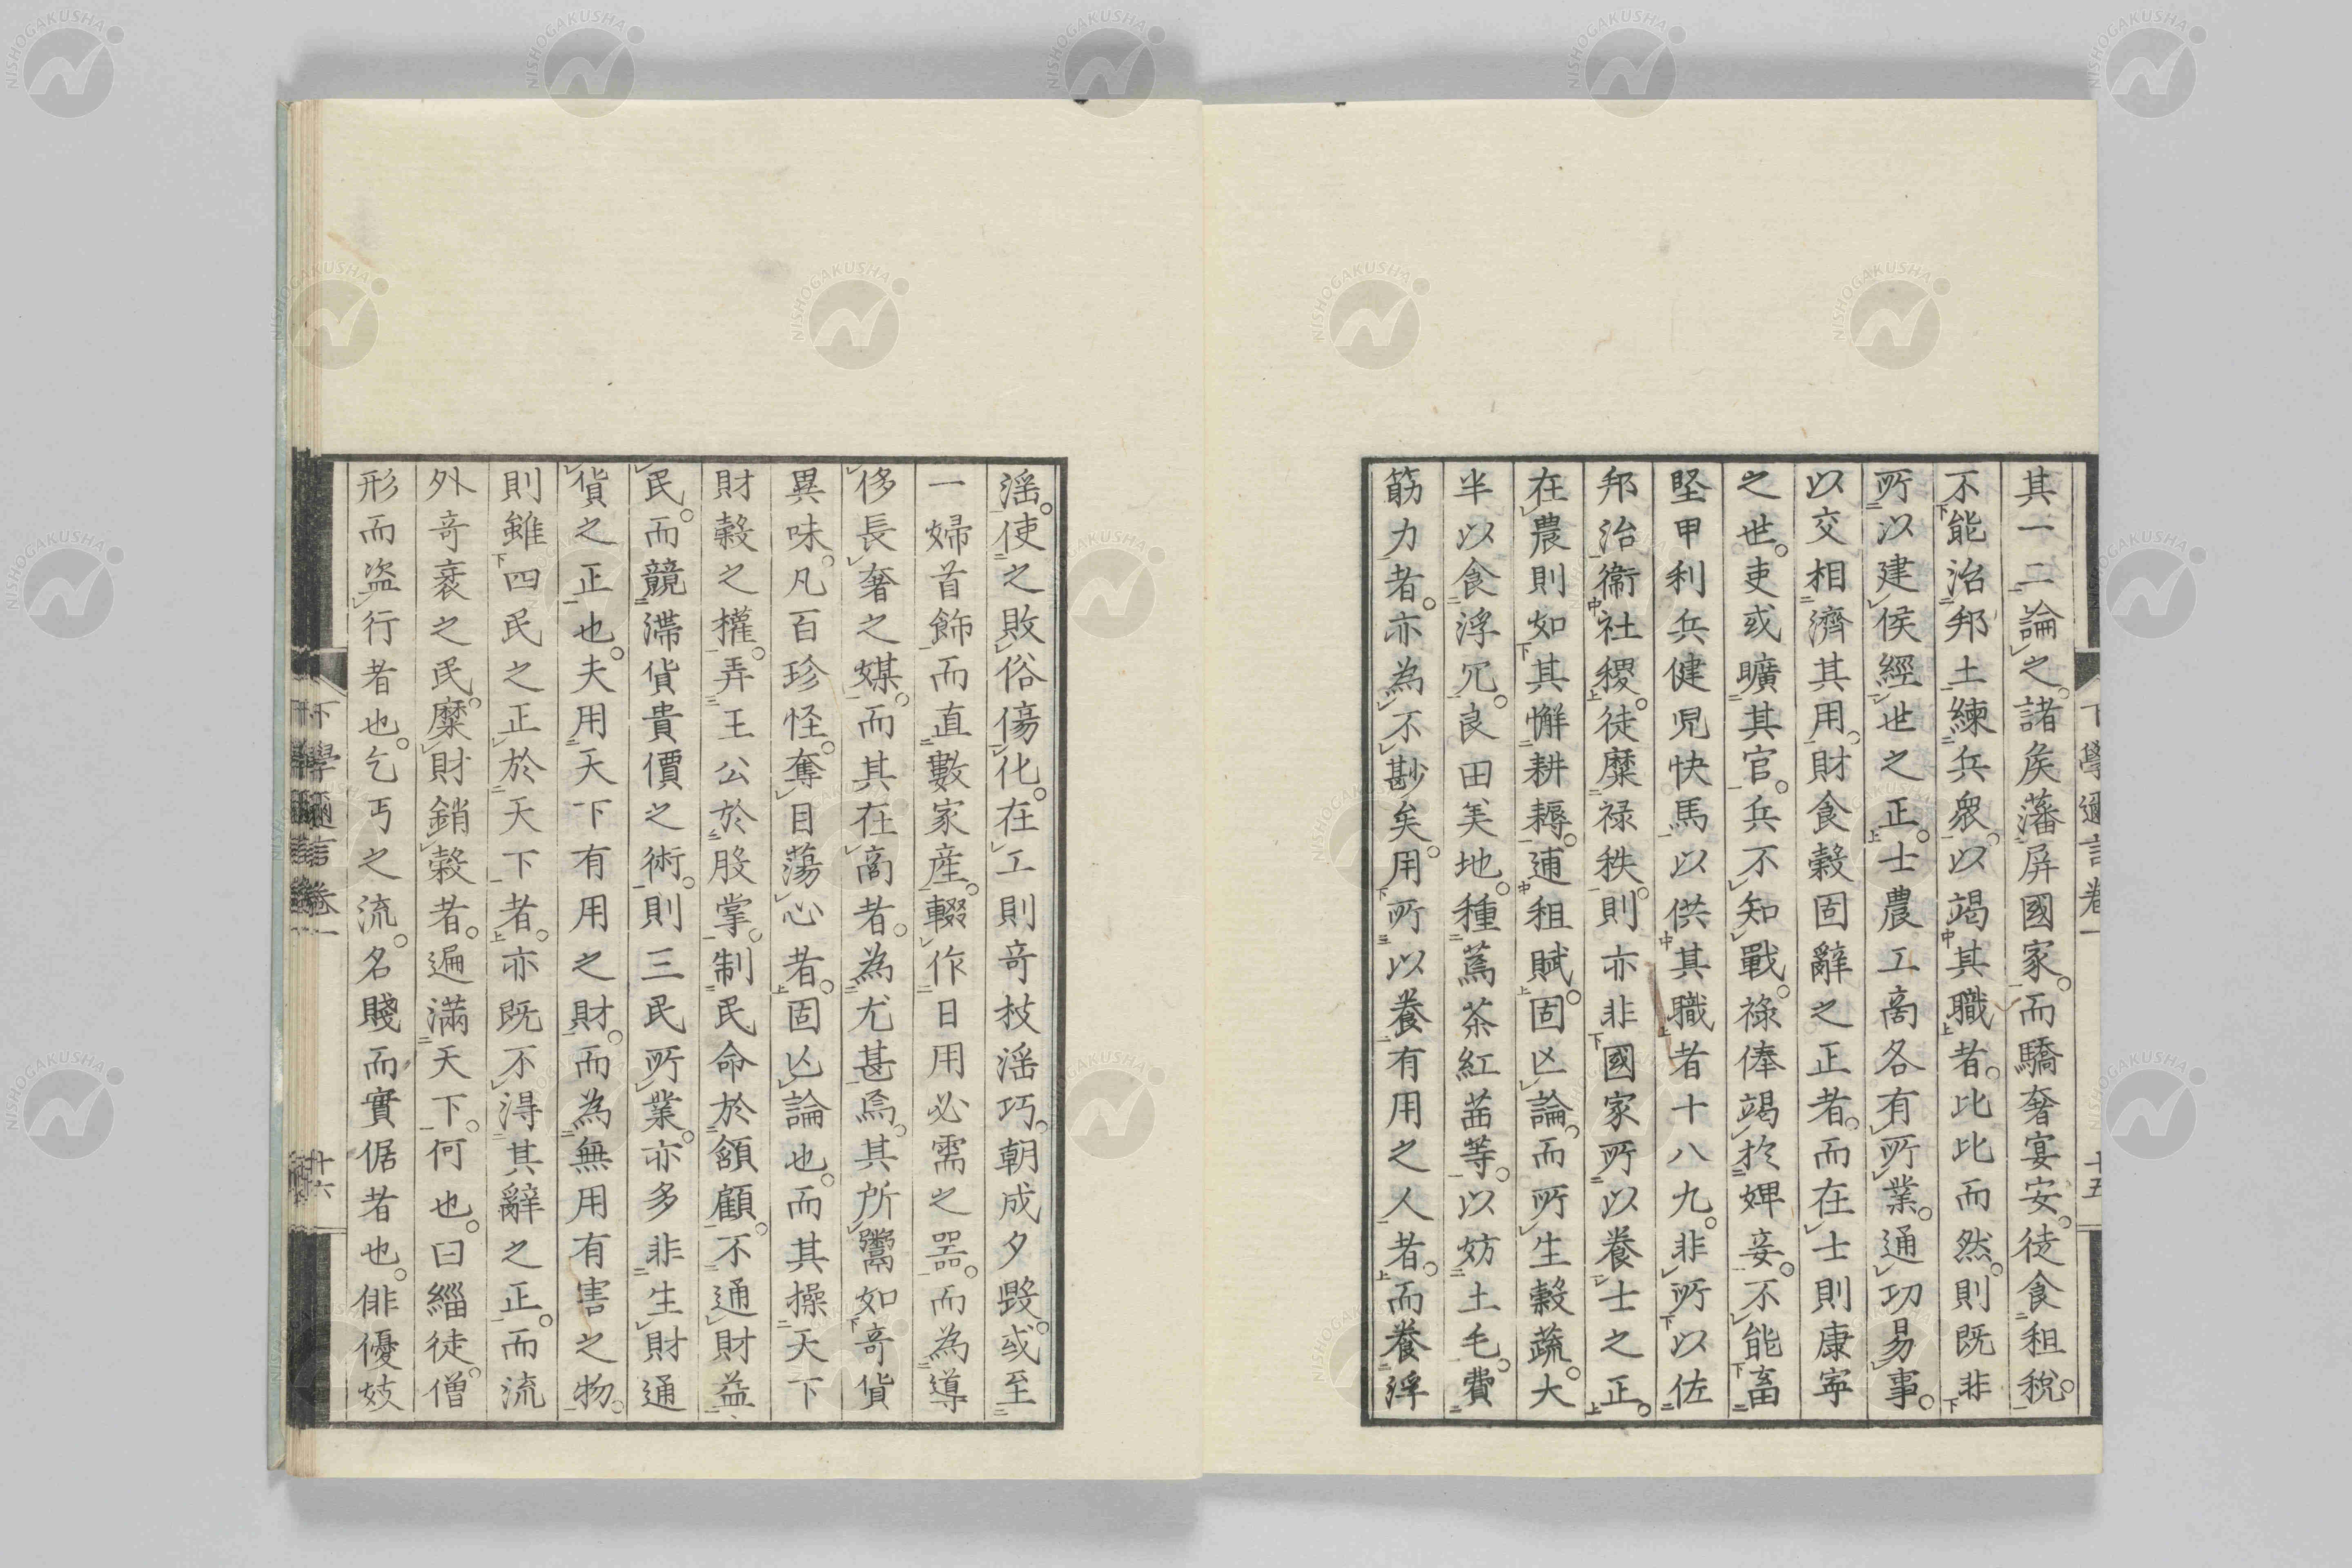 其一二論之諸矦藩屏國家而驕奢宴安徒食租稅
不能治邦土練兵衆以竭其職者比比而然則既非
所以建侯經世之正士農工啇各有所業通功易事
以交相濟其用財食穀固辭之正者而在士則康寧
之世吏或曠其官兵不知戰祿俸竭於婢妾不能畜
堅甲利兵健児快馬以供其職者十八九非所以佐
邦治衞社稷徒糜禄秩則亦非國家所以養士之正
在農則如其懈耕耨逋租賦固亾論而所生穀蔬大
半以食浮冗良田美地種蔫茶紅茁等以妨土毛費
筋力者亦為不尠矣用所以養有用之人者而養浮
下學邇言卷一
十五
滛使之敗俗傷化在工則竒技滛巧朝成夕毀或至
一婦首飾而直數家産輟作日用必需之器而為導
侈長奢之媒而其在啇者為尤甚焉其所鬻如竒貨
異味凡百珍怪奪目蕩心者固亾論也而其操天下
財穀之權弄王公於股掌制民命於頷顧不通財益
民而競滯貨貴價之術則三民所業亦多非生財通
貨之正也夫用天下有用之財而為無用有害之物
則雖四民之正於天下者亦既不淂其辭之正而流
外竒袤之民糜財銷穀者遍滿天下何也曰緇徒僧
形而盗行者也乞丐之流名賤而實倨者也俳優妓
下學邇言卷一
十六
NISHOGAKUSHA